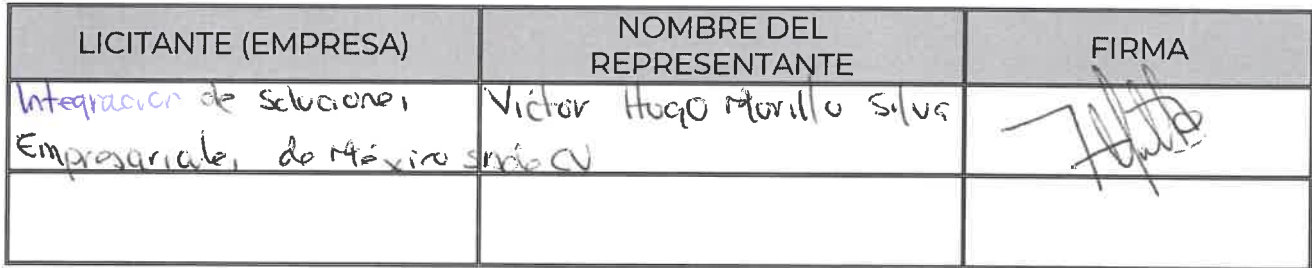 LICITANTE (EMPRESA)
NOMBRE DEL
REPRESENTANTE
FIRMA
Integración de Soluciones
Empresariales de México SA de CV
Victor Hugo Murillo Silva